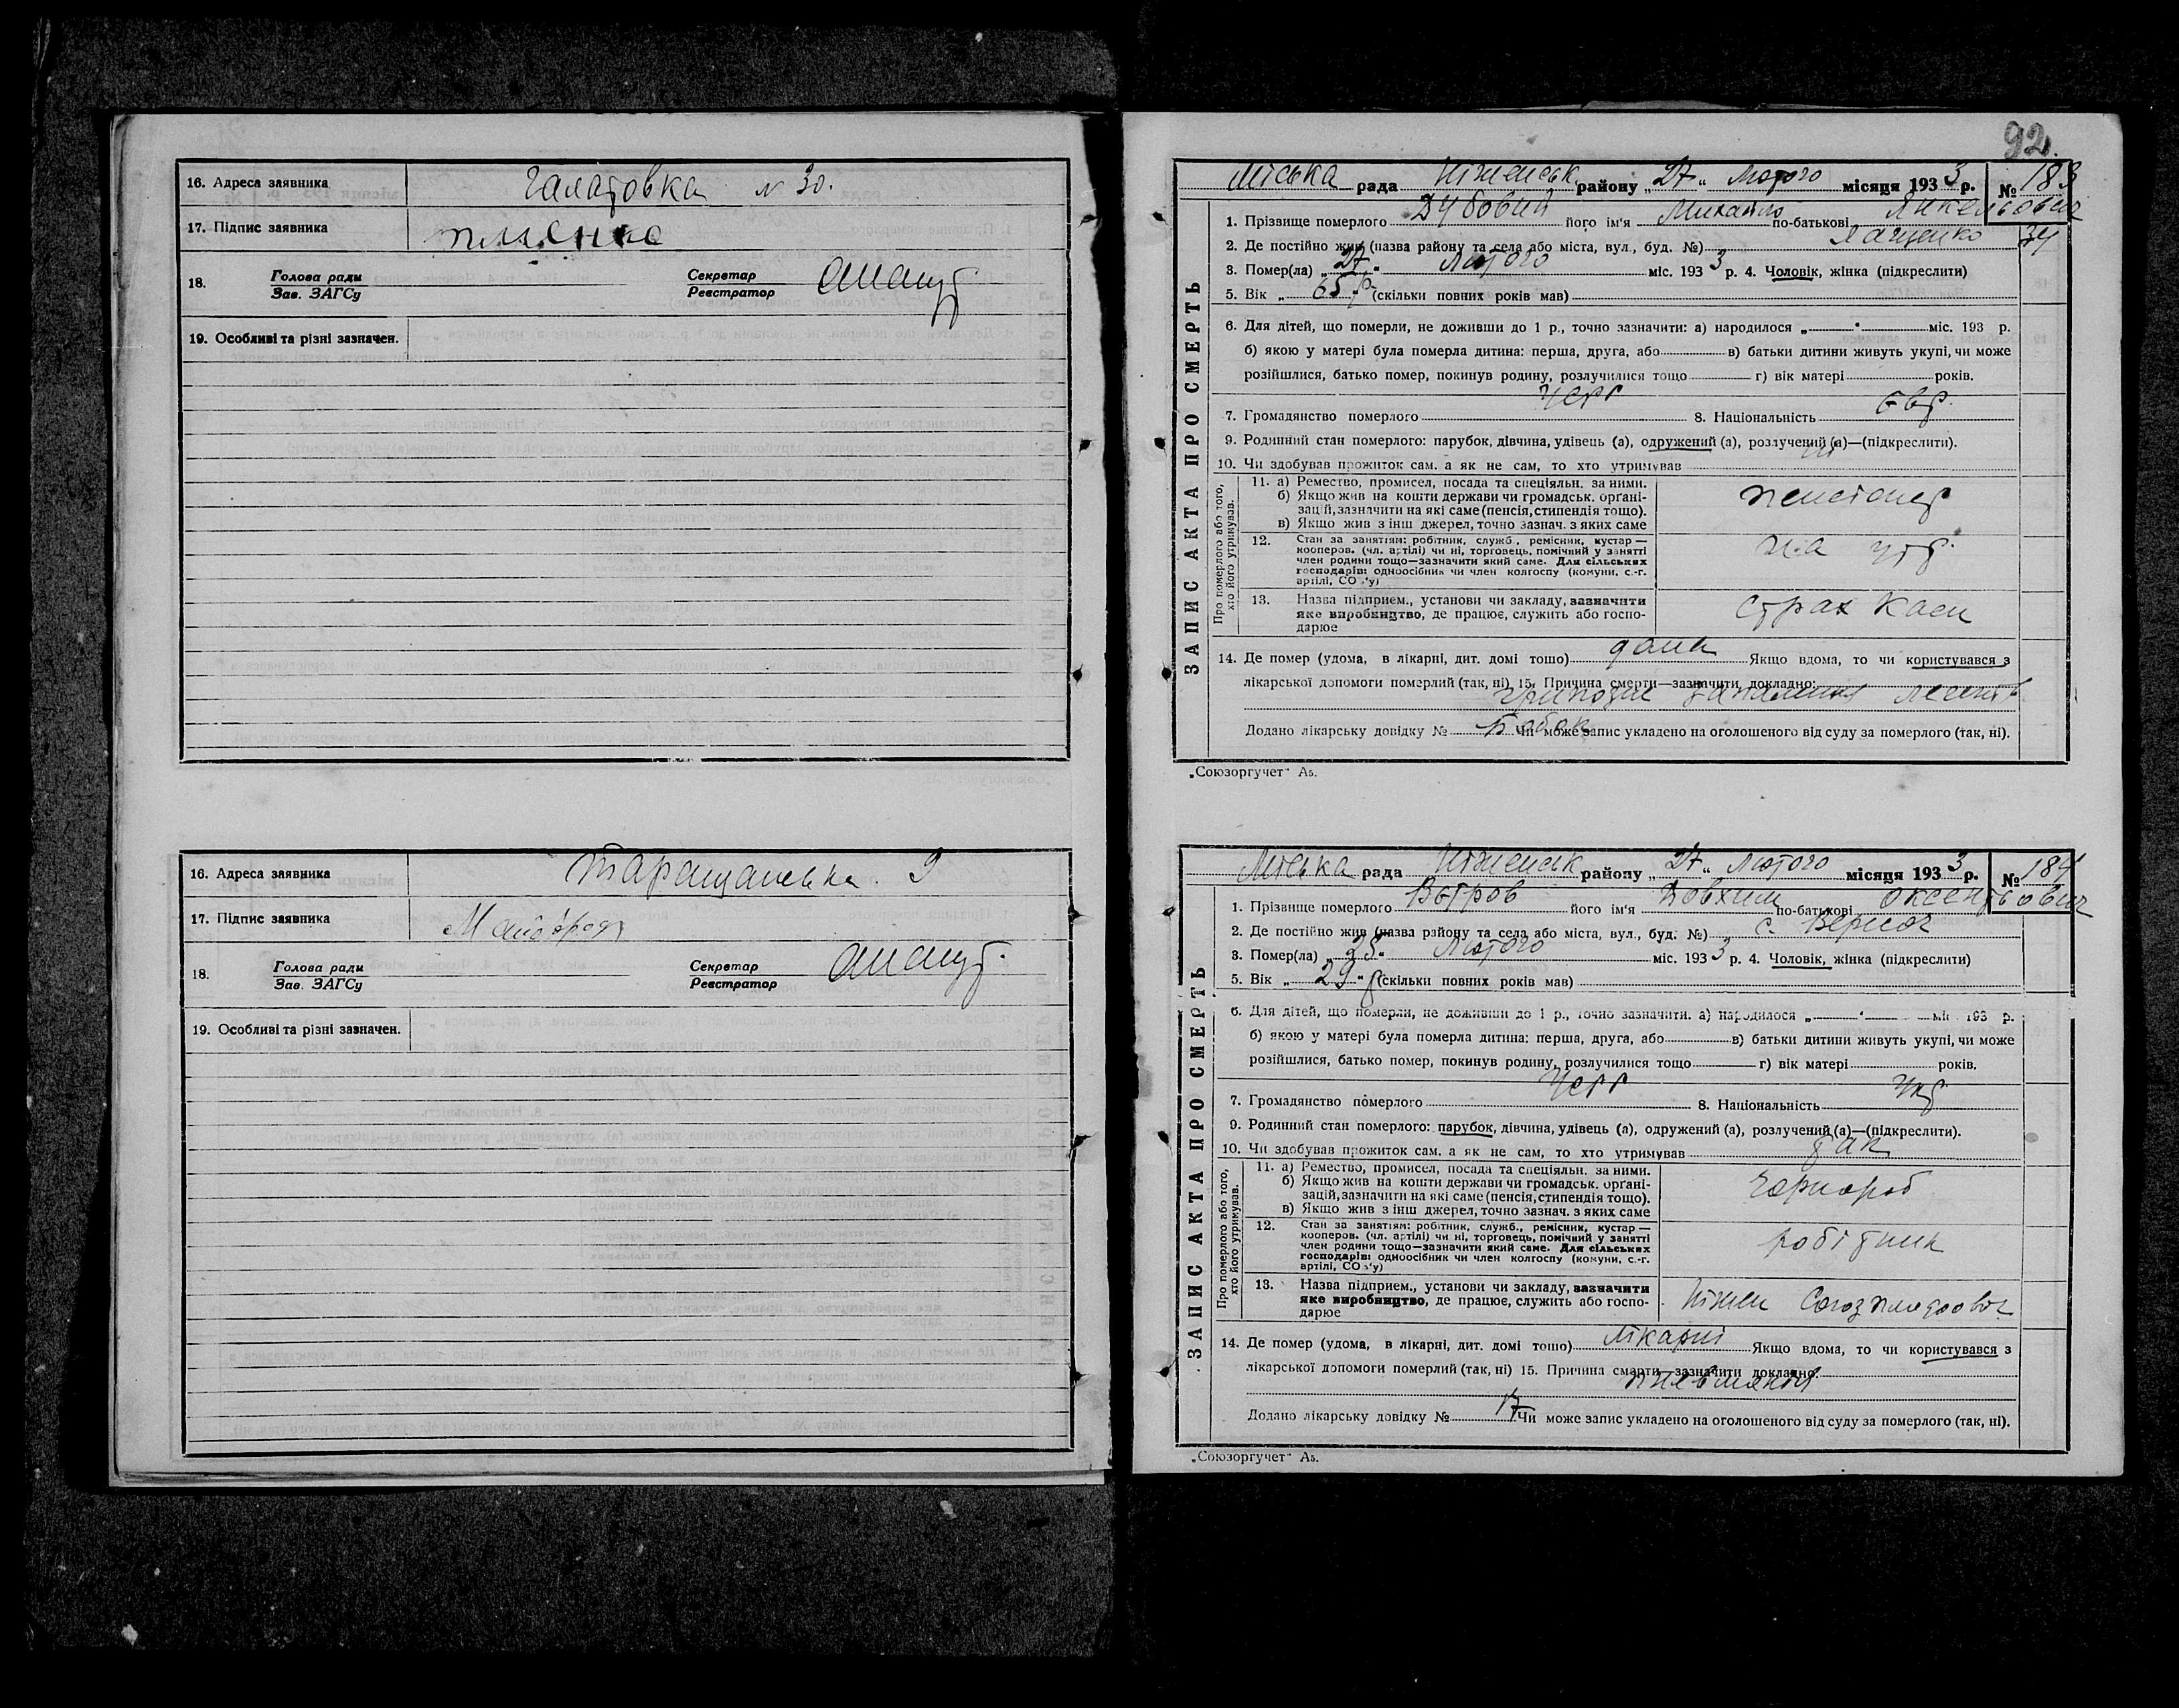 16. Адреса заявника Галатовка № 30.
17. Підпис заявника
18. Голова ради Зав. ЗАГСу Секретар Реєстратор
19. Особливі та різні зазначен.
16. Адреса заявника Таращанська 9
17. Підпис заявника
18. Голова ради Зав. ЗАГСу Секретар Реєстратор
19. Особливі та різні зазначен.
92.
Міська рада Ніженськ району „27“ Лютого місяця 1933 р. № 183
ЗАПИС АКТА ПРО СМЕРТЬ
1. Прізвище померлого Дубовий його ім'я Михайло по-батькові Янкельович
2. Де постійно жив (назва району та села або міста, вул., буд. №) Ященко 34
3. Помер(ла) „27“ Лютого міс. 1933 р. 4. Чоловік, жінка (підкреслити)
5. Вік „65 р“ (скільки повних років мав)
6. Для дітей, що померли, не доживши до 1 р., точно зазначити: а) народилося „ “ міс. 193 р.
б) якою у матері була померла дитина: перша, друга, або в) батьки дитини живуть укупі, чи може
розійшлися, батько помер, покинув родину, розлучилися тощо г) вік матері років.
7. Громадянство померлого УСРР 8. Національність Євр.
9. Родинний стан померлого: парубок, дівчина, удівець (а), одружений (а), розлучений (а)—(підкреслити).
10. Чи здобував прожиток сам. а як не сам, то хто утримував ні
Про померлого або того, хто його утримував.
11. а) Ремество, промисел, посада та спеціяльн. за ними.
б) Якщо жив на кошти держави чи громадськ. орґані-
зацій, зазначити на які саме (пенсія, стипендія тощо).
в) Якщо жив з інш джерел, точно зазнач. з яких саме
пенсіонер
12. Стан за заняттям: робітник, служб., ремісник, кустар—
кооперов. (чл. артілі) чи ні, торговець, помічний у занятті
член родини тощо—зазначити який саме. Для сільських
господарів: одноосібник чи член колгоспу (комуни, с.-г.
артілі, СОЗ'у)
на утр.
13. Назва підприєм., установи чи закладу, зазначити
яке виробництво, де працює, служить або госпо-
дарює
страх каси
14. Де помер (удома, в лікарні, дит. домі тощо) дома Якщо вдома, то чи користувався з
лікарської допомоги померлий (так, ні) 15. Причина смерти—зазначити докладно:
запалення легенів
Додано лікарську довідку № Чи може запис укладено на оголошеного від суду за померлого (так, ні).
„Союзоргучет“ А5.
Міська рада Ніженськ району „27“ Лютого місяця 1933 р. № 184
ЗАПИС АКТА ПРО СМЕРТЬ
1. Прізвище померлого Вєтров його ім'я Довхим по-батькові Оксентьович
2. Де постійно жив (назва району та села або міста, вул., буд. №) с. Вересоч
3. Помер(ла) „25“ Лютого міс. 1933 р. 4. Чоловік, жінка (підкреслити)
5. Вік „29“ р (скільки повних років мав)
6. Для дітей, що померли, не доживши до 1 р., точно зазначити. а) народилося „ “ міс 193 р.
б) якою у матері була померла дитина: перша, друга, або в) батьки дитини живуть укупі, чи може
розійшлися, батько помер, покинув родину, розлучилися тощо г) вік матері років.
7. Громадянство померлого УСРР 8. Національність Укр
9. Родинний стан померлого: парубок, дівчина, удівець (а), одружений (а), розлучений (а)—(підкреслити).
10. Чи здобував прожиток сам. а як не сам, то хто утримував так
Про померлого або того, хто його утримував.
11. а) Ремество, промисел, посада та спеціяльн. за ними.
б) Якщо жив на кошти держави чи громадськ. орґані-
зацій, зазначити на які саме (пенсія, стипендія тощо).
в) Якщо жив з інш джерел, точно зазнач. з яких саме
Чорнороб
12. Стан за заняттям: робітник, служб., ремісник, кустар—
кооперов. (чл. артілі) чи ні, торговець, помічний у занятті
член родини тощо—зазначити який саме. Для сільських
господарів: одноосібник чи член колгоспу (комуни, с.-г.
артілі, СОЗ'у)
робітник
13. Назва підприєм., установи чи закладу, зазначити
яке виробництво, де працює, служить або госпо-
дарює
Ніжен Союзплодоовоч
14. Де помер (удома, в лікарні, дит. домі тощо) лікарні Якщо вдома, то чи користувався з
лікарської допомоги померлий (так, ні) 15. Причина смерти—зазначити докладно:
пневмонія
Додано лікарську довідку № 17 Чи може запис укладено на оголошеного від суду за померлого (так, ні).
„Союзоргучет“ А5.